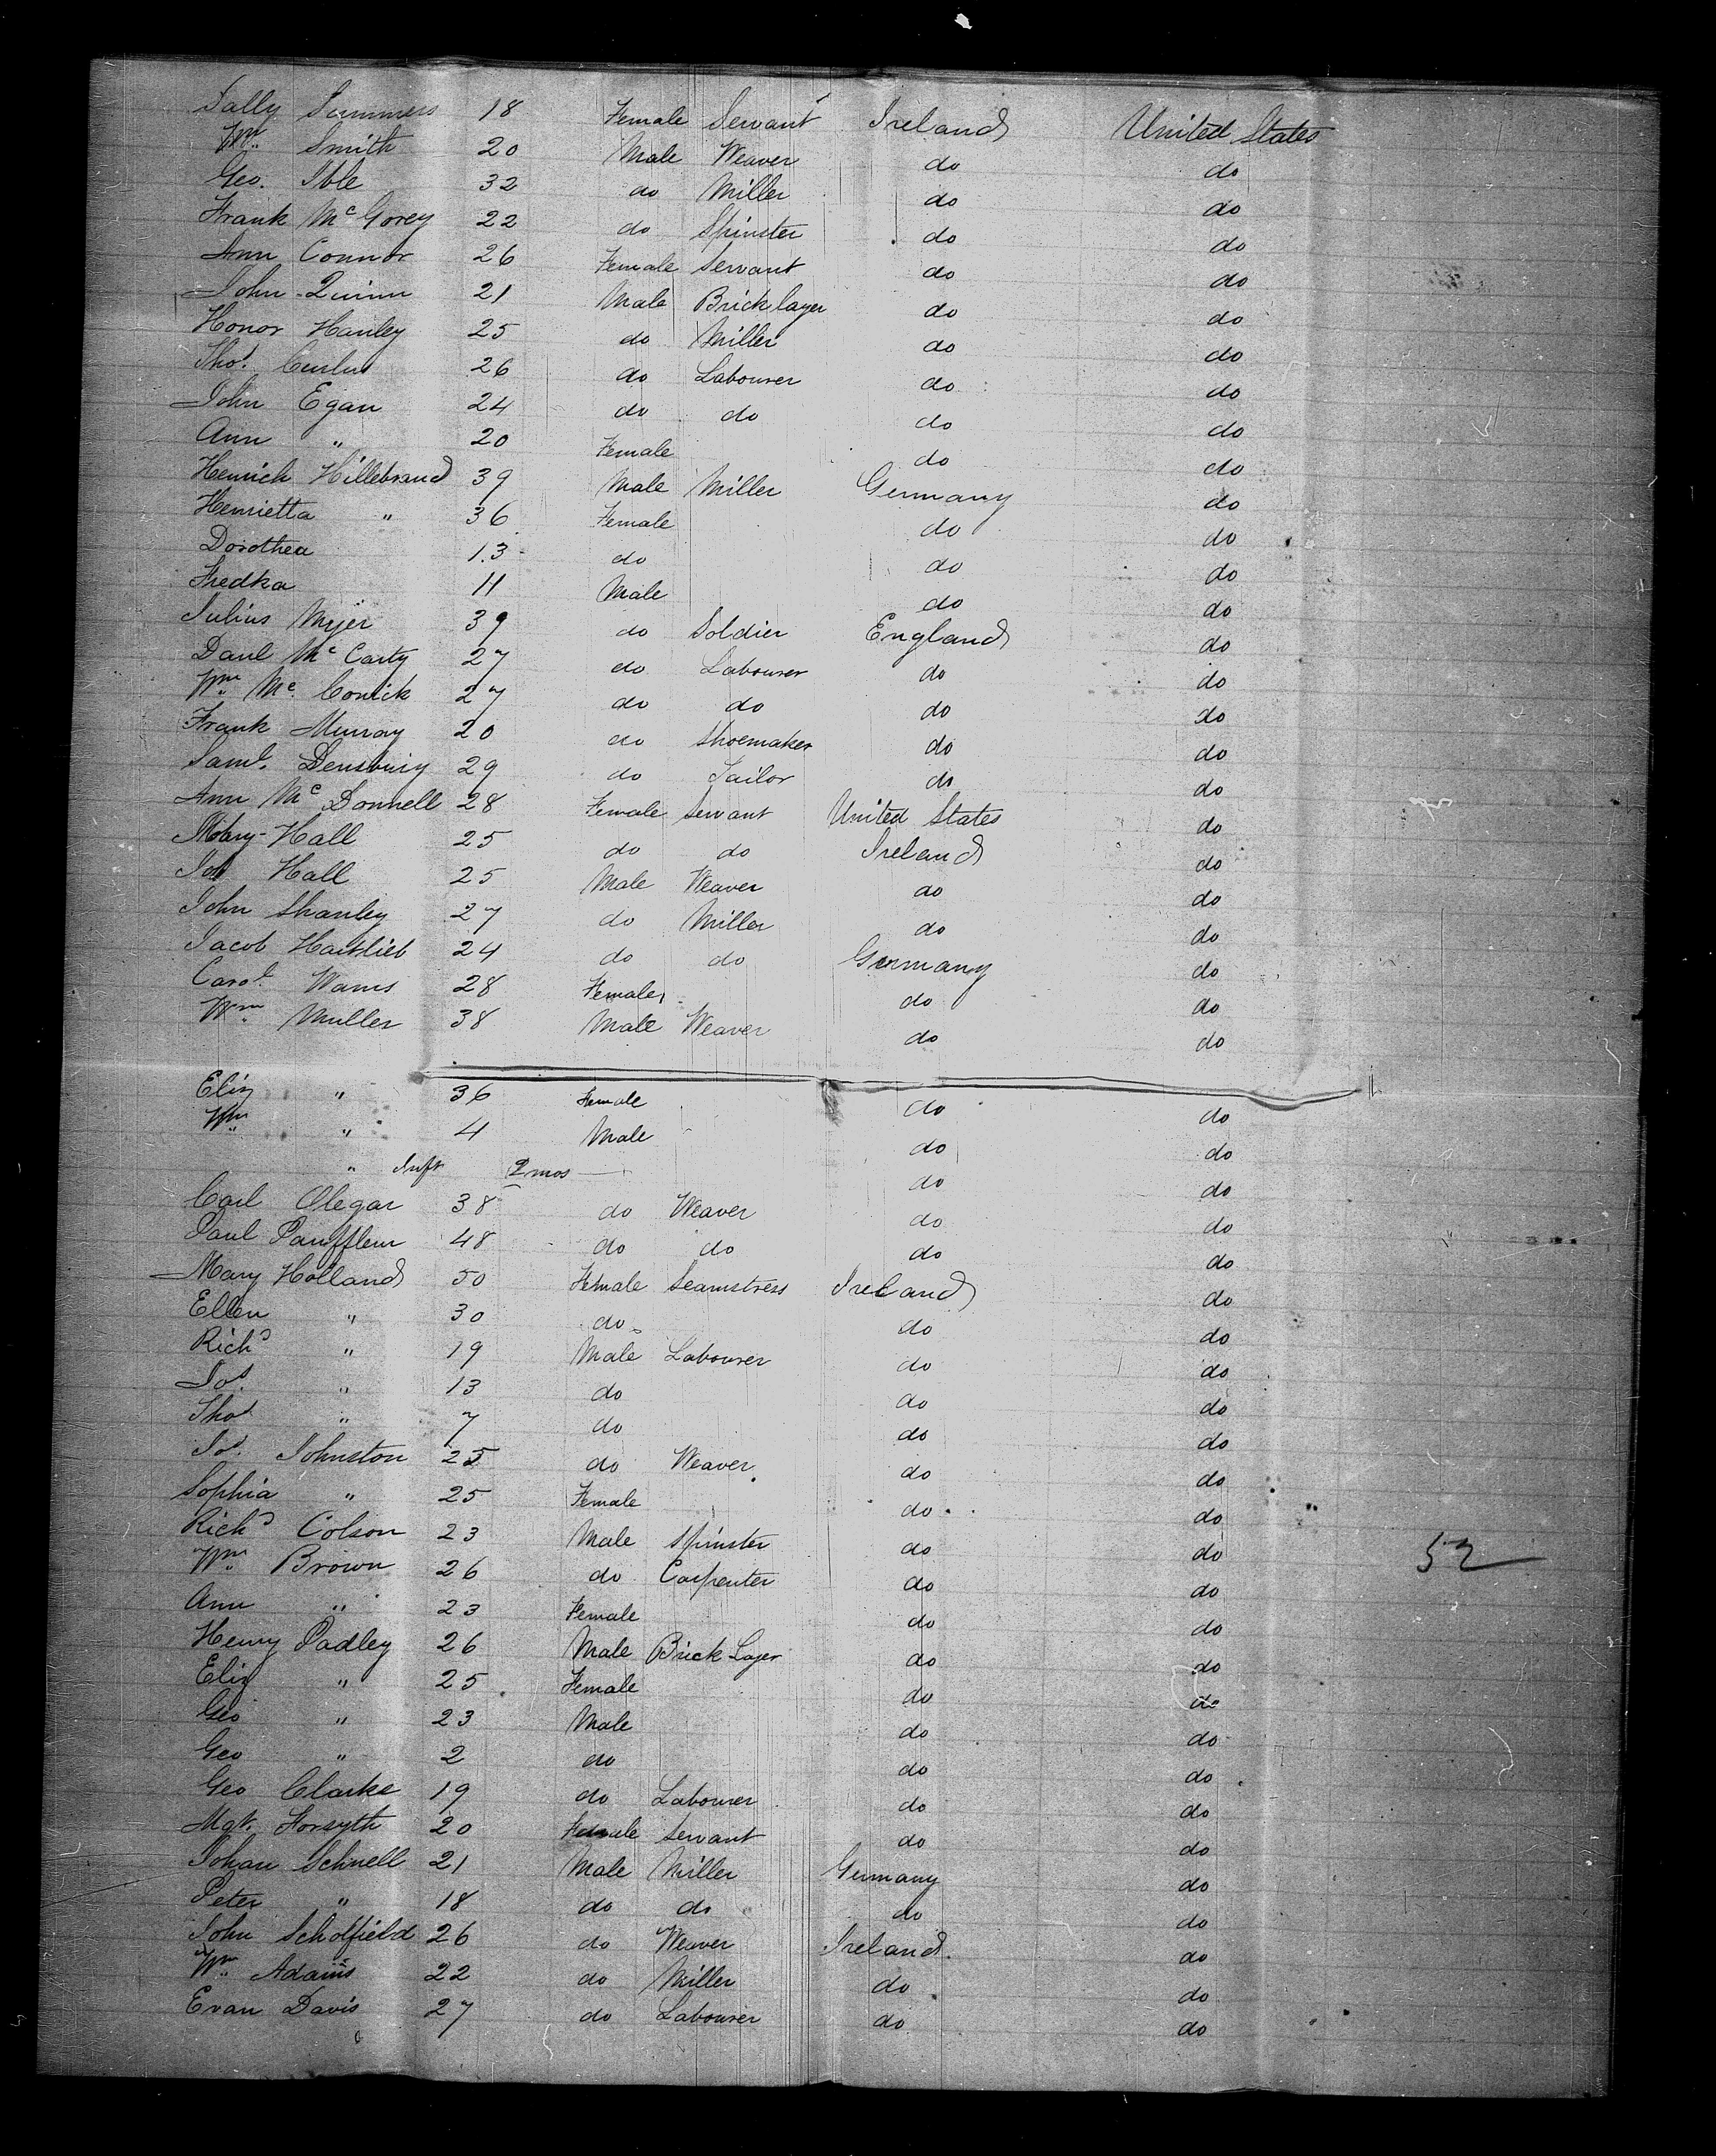 Sally Summers 18 Female Servant Ireland United States
Wm. Smith 20 Male Weaver do do
Geo. Ible 32 do Miller do do
Frank McGorey 22 do Spinster do do
Ann Connor 26 Female Servant do do
John Quinn 21 Male Bricklayer do do
Honor Hanley 25 do Miller do do
Thos. 26 do Labourer do do
John Egan 24 do do do do
Ann " 20 Female do do
Henrich Hillebrand 39 Male Miller Germany do
Henrietta " 36 Female do do
Dorothea 13 do do do
Fredka 11 Male do do
Julius Mejer 39 do Soldier England do
Danl McCarty 27 do Labourer do do
Wm. Mc. Conick 27 do do do do
Frank Murray 20 do Shoemaker do do
Saml. 29 do Tailor do do
Ann McDonnell 28 Female Servant United States do
Mary Hall 25 do do Ireland do
Jos Hall 25 Male Weaver do do
John Shanley 27 do Miller do do
Jacob Hartlieb 24 do do Germany do
Carol. Wams 28 Female do do
Wm. Muller 38 Male Weaver do do
Eliz " 36 Female do do
Wm. " 4 Male do do
" Inft 2 mos do do
Carl Olegar 38 do Weaver do do
Paul Pauffleur 48 do do do do
Mary Holland 50 Female Seamstress Ireland do
Ellen " 30 do do do
Richd " 19 Male Labourer do do
Jos. " 13 do do do
Thos " 7 do do do
Jos. Johnston 25 do Weaver do do
Sophia " 25 Female do do
Richd Colson 23 Male Spinster do do
52
Wm. Brown 26 do Carpenter do do
Ann " 23 Female do do
Henry Padley 26 Male Brick Layer do do
Eliz " 25 Female do do
Geo " 23 Male do do
Geo " 2 do do do
Geo Clarke 19 do Labourer do do
Mgt. Forsyth 20 Female Servant do do
Johan Schnell 21 Male Miller Germany do
Peter " 18 do do do do
John Scholfield 26 do Weaver Ireland do
Wm. Adams 22 do Miller do do
Evan Davis 27 do Labourer do do